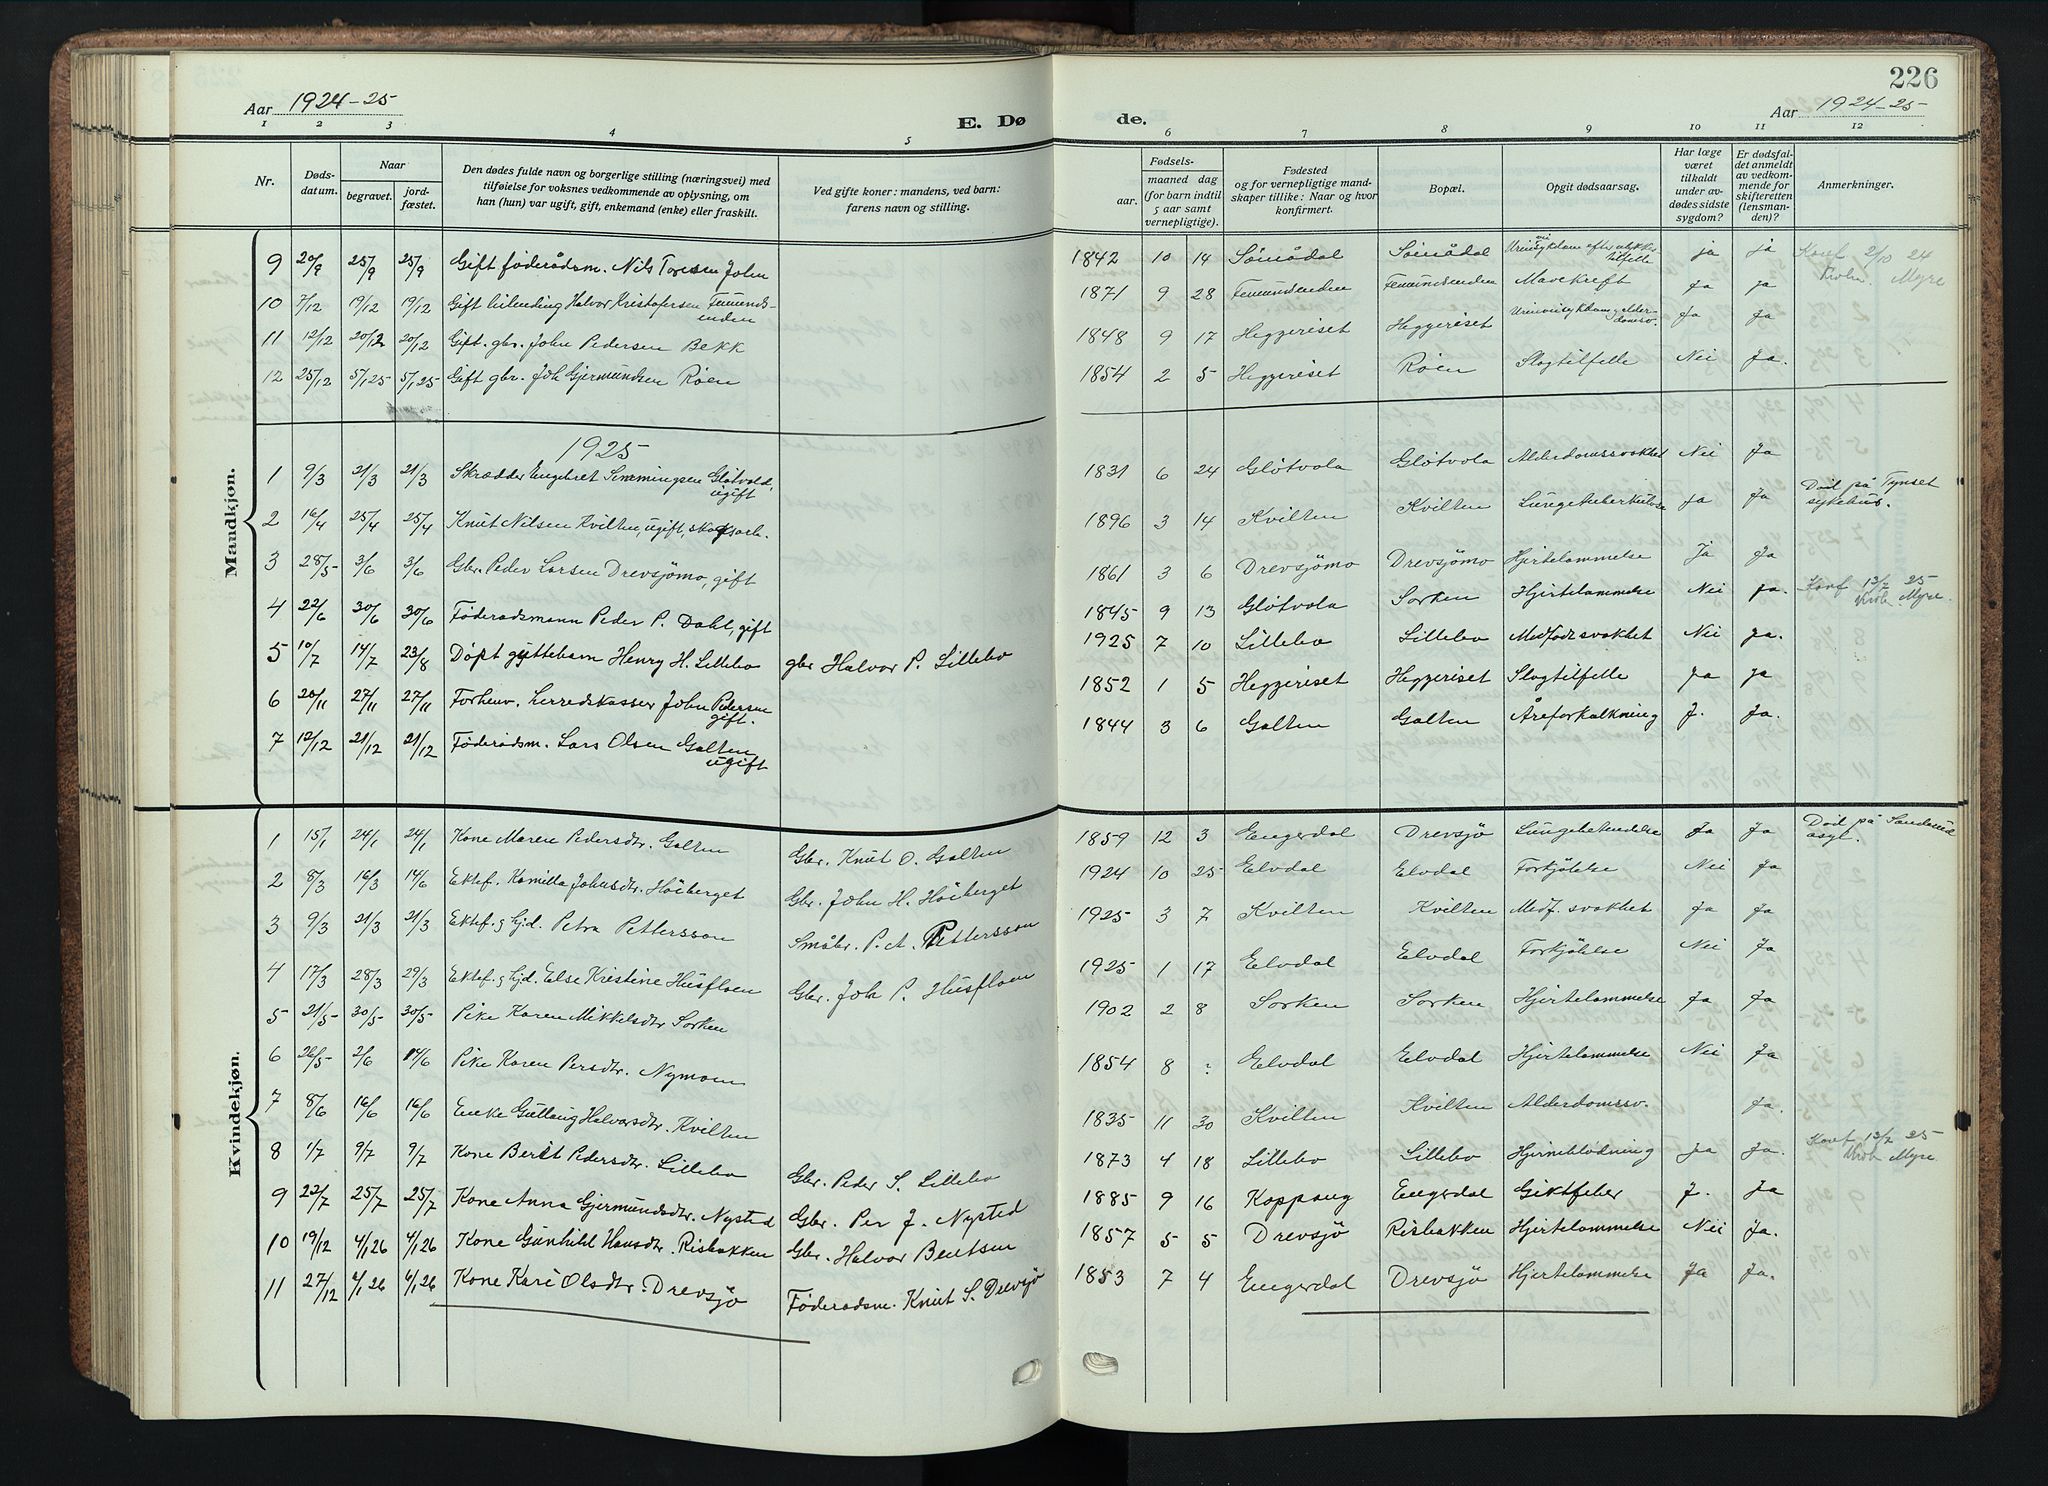 226
Aar 1924-25
E. Dø
de.
Aar 1924-25
1 2 3 4 5 6 7 8 9 10 11 12
Nr.
Døds-
datum.
Naar
begravet.
jord-
fæstet.
Den dødes fulde navn og borgerlige stilling (næringsvei) med
tilføielse for voksnes vedkommende av oplysning, om
han (hun) var ugift, gift, enkemand (enke) eller fraskilt.
Ved gifte koner: mandens, ved barn:
farens navn og stilling.
Fødsels-
aar.
maaned dag
(for barn indtil
5 aar samt
vernepligtige).
Fødested
og for vernepligtige mand-
skaper tillike: Naar og hvor
konfirmert.
Bopæl.
Opgit dødsaarsag.
Har læge
været
tilkaldt
under av-
dødes sidste
sygdom?
Er dødsfal-
det anmeldt
av vedkom-
mende for
skifteretten
(lensman-
den)?
Anmerkninger.
Mandkjøn.
9 20/9 25/9 25/9 Gift føderådsm. Nils Toresen John 1842 10 14 Sømådal Sømådal Urinveisykdom efter ulykkestilfelle ja ja
10 7/12 19/12 19/12 Gift Halvor Kristofersen Femundsenden 1871 9 28 Femundsenden Femundsenden Mavekreft Ja ja
11 12/12 20/12 20/12 Gift. gbr. John Pedersen Bekk 1848 9 17 Heggeriset Heggeriset Urinveisykdom, alderdomsv. Ja Ja
12 25/12 5/1,25 5/1,25 Gift gbr. Joh Gjermundsen Røen 1854 2 5 Heggeriset Røen Slagtilfelle Nei Ja.
1925
1 9/3 21/3 21/3 Skrædder Engebret Semmingsen Gløtvold, ugift 1831 6 24 Gløtvola Gløtvola Alderdomssvakhet Nei Ja
2 16/4 25/4 25/4 Knut Nilsen Kvilten, ugift, skogsarb. 1896 3 14 Kvilten Kvilten Lungetuberkulose Ja Ja Død på Tynset sykehus.
3 28/5 3/6 3/6 Gbr. Peder Larsen Drevsjømo, gift 1861 3 6 Drevsjømo Drevsjømo Hjertelammelse Ja Ja
4 22/6 30/6 30/6 Føderadsmann Peder P. Dahl, gift 1845 9 13 Gløtvola Sorken Hjertelammelse Nei Ja.
5 10/7 14/7 23/8 Døpt guttebarn Henry H. Lillebo gbr Halvor P. Lillebo 1925 7 10 Lillebo Lillebo Medfødt svakhet Nei Ja.
6 20/11 27/11 27/11 Forhenv. herredskasser John Pedersen gift. 1852 1 5 Heggeriset Heggeriset Slagtilfelle Ja ja
7 12/12 21/12 21/12 Føderådsm. Lars Olsen Galten ugift 1844 3 6 Galten Galten Åreforkalkning J. Ja.
Kvindekjøn.
1 15/1 24/1 24/1 Kone Maren Pedersdtr. Galten Gbr. Knut O. Galten 1859 12 3 Engerdal Drevsjø Lungebetendelse Ja Ja Død på Sanderud asyl.
2 8/3 16/3 14/6 Ektef. Kamilla Johnsdtr. Høiberget Gbr. John H. Høiberget 1924 10 25 Elvdal Elvdal Forkjølelse Nei Ja
3 9/3 21/3 21/3 Ektef. & hjd. Petra Pettersson Småbr. P. A. Pettersson 1925 3 7 Kvilten Kvilten Medf. svakhet Ja Ja
4 17/3 28/3 29/3 Ektef. & hjd. Else Kristine Husfloen Gbr. Joh P. Husfloen 1925 1 17 Elvdal Elvdal Forkjølelse Nei Ja
5 21/5 30/5 30/5 Pike Karen Mikkelsdtr Sorken 1902 2 8 Sorken Sorken Hjertelammelse Ja Ja
6 26/5 2/6 14/6 Pike Karen Persdtr. Nymoen 1854 8 ? Elvdal Elvdal Hjertelammelse Nei Ja
7 8/6 16/6 16/6 Enke Gullaug Halvorsdtr. Kvilten 1835 11 30 Kvilten Kvilten Alderdomssv. Ja.
8 1/7 9/7 9/7 Kone Berit Pedersdtr. Lillebo Gbr. Peder S. Lillebo 1873 4 18 Lillebo Lillebo Hjerneblødning Ja Ja.
9 22/7 25/7 25/7 Kone Anna Gjermundsdtr. Nysted Gbr. Per J. Nysted 1885 9 16 Koppang Engerdal Giktfeber J. Ja
10 19/12 4/1,26 4/1,26 Kone Gunhild Hansdtr. Risbakken Gbr. Halvor Bentsen 1857 5 5 Drevsjø Risbakken Hjertelammelse Nei Ja.
11 27/12 4/1,26 4/1,26 Kone Kari Olsdtr. Drevsjø Føderadsm. Knut S. Drevsjø 1853 7 4 Engerdal Drevsjø Hjertelammelse Ja Ja.